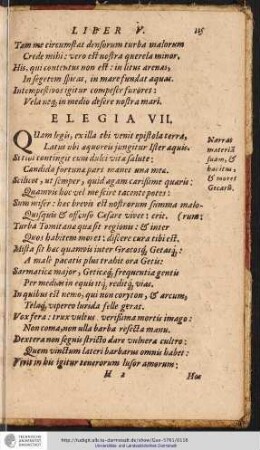 LIBER V. 115
Tam me circumstat densorum turba malorum
Crede mihi: vero est nostra querela minor.
His, qui contentus non est: in litus arenas,
In segetem spicas, in mare fundat aquas.
Intempestivos igitur compesce furores:
Vela neq; in medio desere nostra mari.
ELEGIA VII.
QUam legis, ex illa tibi venit epistola terra,
Latus ubi aequoreis jungitur Ister aquis.
Si tibi contingit cum dulci vita salute:
Candida fortunae pars manet una meae.
Scilicet, ut semper, quid agam carissime quaeris:
Quamvis hoc vel me scire tacente potes:
Sum miser: haec brevis est nostrorum summa malo-
Quisquis & offenso Caesare vivet: erit. (rum:
Turba Tomitanae quae sit regionis: & inter
Quos habitem mores: discere cura tibi est.
Mista sit haec quamvis inter Graecosq; Getasq;:
A male pacatis plus trahit ora Getis:
Sarmaticae major, Geticaeq; frequentia gentis
Per medias in equis itq; reditq; vias.
In quibus est nemo, qui non coryton, & arcum,
Telaq; vipereo lurida felle gerat.
Vox fera: trux vultus verissima mortis imago:
Non coma, non ulla barba resecta manu.
Dextera non segnis stricto dare vulnera cultro:
Quem vinctum lateri barbarus omnis habet:
Vivit in his igitur tenerorum lusor amorum:
H 2 Hos
Narrat
materiã
suam, &
habitus,
& mores
Getarũ.
TECHNISCHE
UNIVERSITÄT
DARMSTADT
http://tudigit.ulb.tu-darmstadt.de/show/Gue-5791/0118
Universitäts- und Landesbibliothek Darmstadt